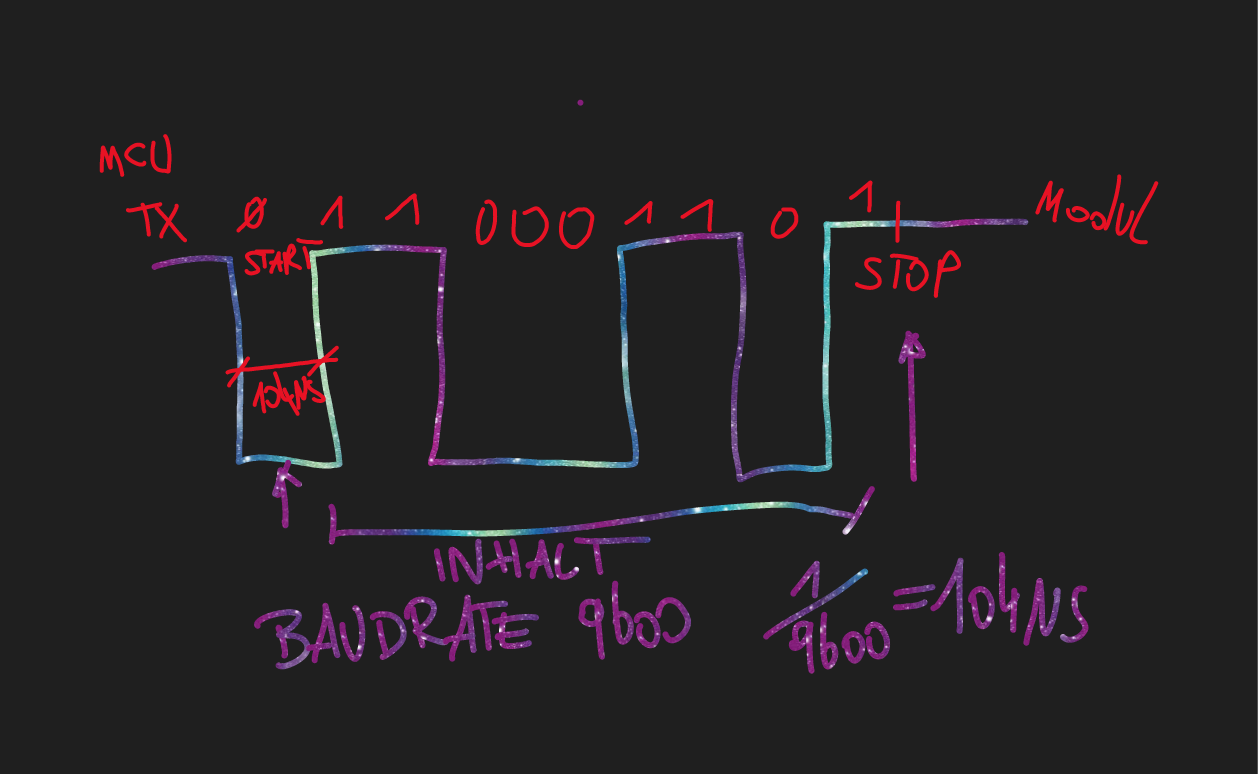 MCU
TX Ø 1 1 000 1 1 0 1 MODUL
START STOP
104µs
INHALT
BAUDRATE 9600 1/9600 = 104µs